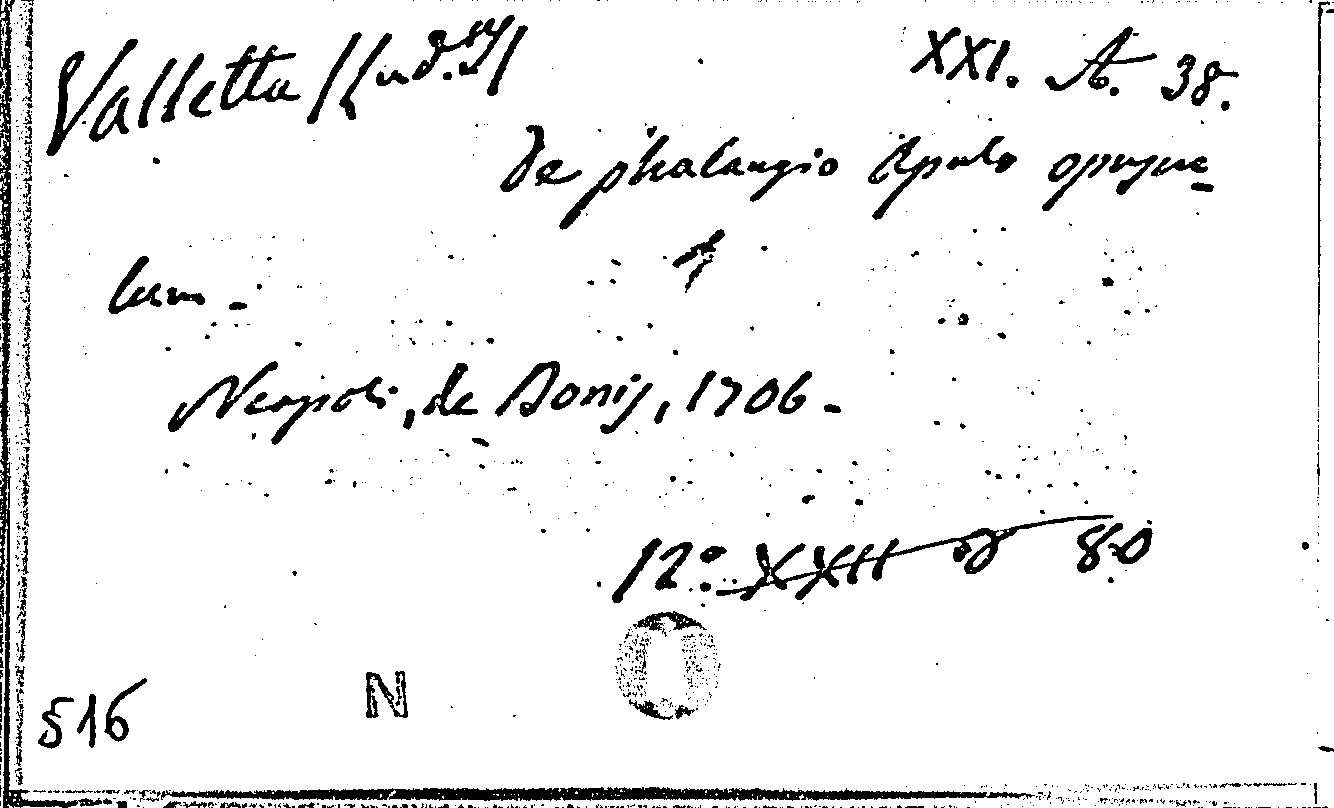 Valletta (Lud.us)
XXI. A. 38.
de phalangio Apulo opuscu-
lum -
Neapoli, de Bonis, 1706 -
12:° XXII d 80
516
N